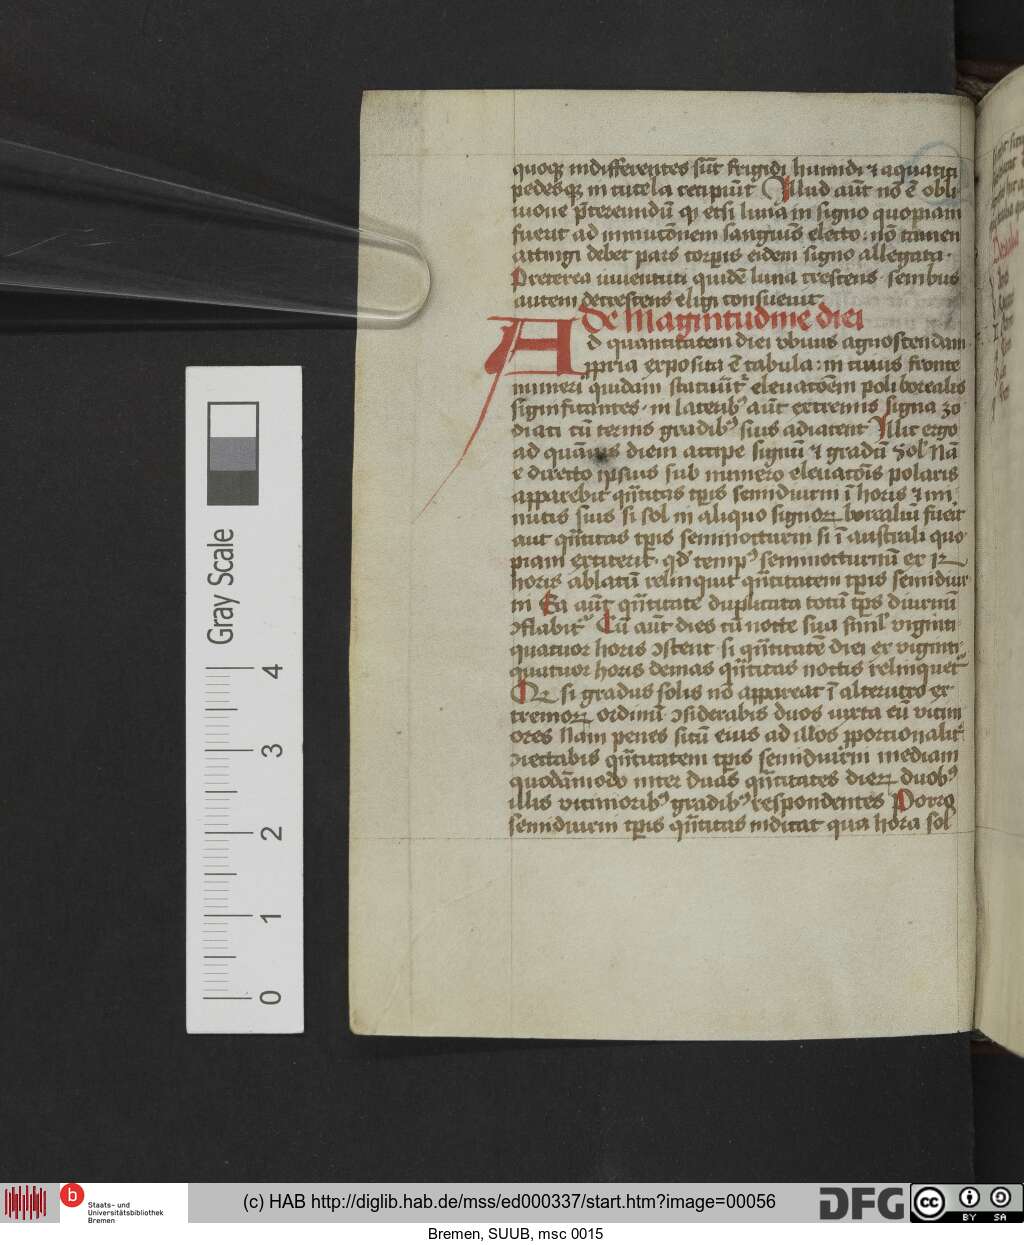 quoqꝫ indifferentes sūt frigidi humidi ⁊ aquatici
pedesqꝫ in tutela recipiūt Illud aūt nō ē obli
uione p̄tereundū qꝫ etsi luna in signo quopiam
fuerit ad inmutōnem sanguīs electo: nō tamen
attingi debet pars corpīs eidem signo allegata.
Preterea iuuentuti quidē luna crescens. senibus
autem decrescens eligi consueuit
De Magnitudine diei
Ad quantitatem diei vbiuis agnoscendam.
ꝓpria exposita ē tabula: in cuius fronte
numeri quidam statuūt᷑ eleuatōem poli borealis
significantes. in lateribꝰ aūt extremis signa zo
diaci cū ternis gradibꝰ suis adiacent Illic ergo
ad quāuis diem accipe signū ⁊ gradū Sol' Nā
e directo ipsius sub numero eleuatōis polaris
apparebit qn̄titas tp̄is semidiurni ī horis ⁊ mi
nutis suis si sol in aliquo signoꝝ borealiū fuerit
aut qn̄titas tp̄is seminocturni si ī australi quo
piam extiterit. qd' tempꝰ seminocturnū ex 12
horis ablatū relinquit qn̄titatem tp̄is semidiur
ni Ea aūt qn̄titate duplicata totū tp̄s diurnū
ↄflabit᷑ Cū aūt dies cū nocte sua simul viginti
quatuor horis ↄstent. si qn̄titatē diei ex viginti
quatuor horis demas qn̄titas noctis relinquet᷑
Qꝫ si gradus solis nō appareat ī alterutro ex
tremoꝝ ordinū ↄsiderabis duos iuxta eū vicini
ores Nam penes sitū eius ad illos ꝓportionalit᷑
ↄiectabis qn̄titatem tp̄is semidiurni mediam
quodāmodo inter duas qn̄titates dieꝝ duobꝰ
illis vicinioribꝰ gradibꝰ respondentes Porro
semidiurni tp̄is qn̄titas indicat qua hora sol
Gray Scale
0 1 2 3 4
b Staats- und
Universitätsbibliothek
Bremen
(c) HAB http://diglib.hab.de/mss/ed000337/start.htm?image=00056
DFG
cc BY SA
Bremen, SUUB, msc 0015